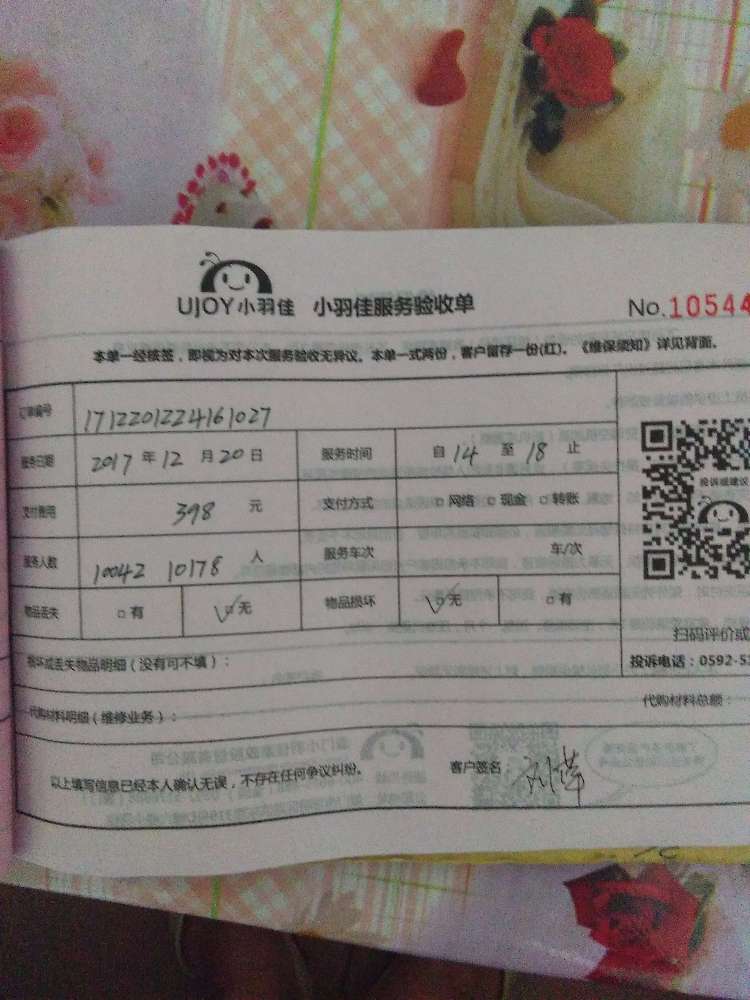 UJOY小羽佳 小羽佳服务验收单 No.10544
本单一经核签，即视为对本次服务验收无异议。本单一式两份，客户留存一份(红)。《维保须知》详见背面。
订单编号 1712201224161027
服务日期 2017年12月20日 服务时间 自14至18止
支付费用 398 元 支付方式 □网络 □现金 □转账
服务人数 10042 10178 人 服务车次 车/次
物品丢失 □有 ☑无 物品损坏 ☑无 □有
投诉或建议
扫码评价或
损坏或丢失物品明细（没有可不填）： 投诉电话：0592-5
代购材料明细（维修业务）： 代购材料总额：
以上填写信息已经本人确认无误，不存在任何争议纠纷。 客户签名